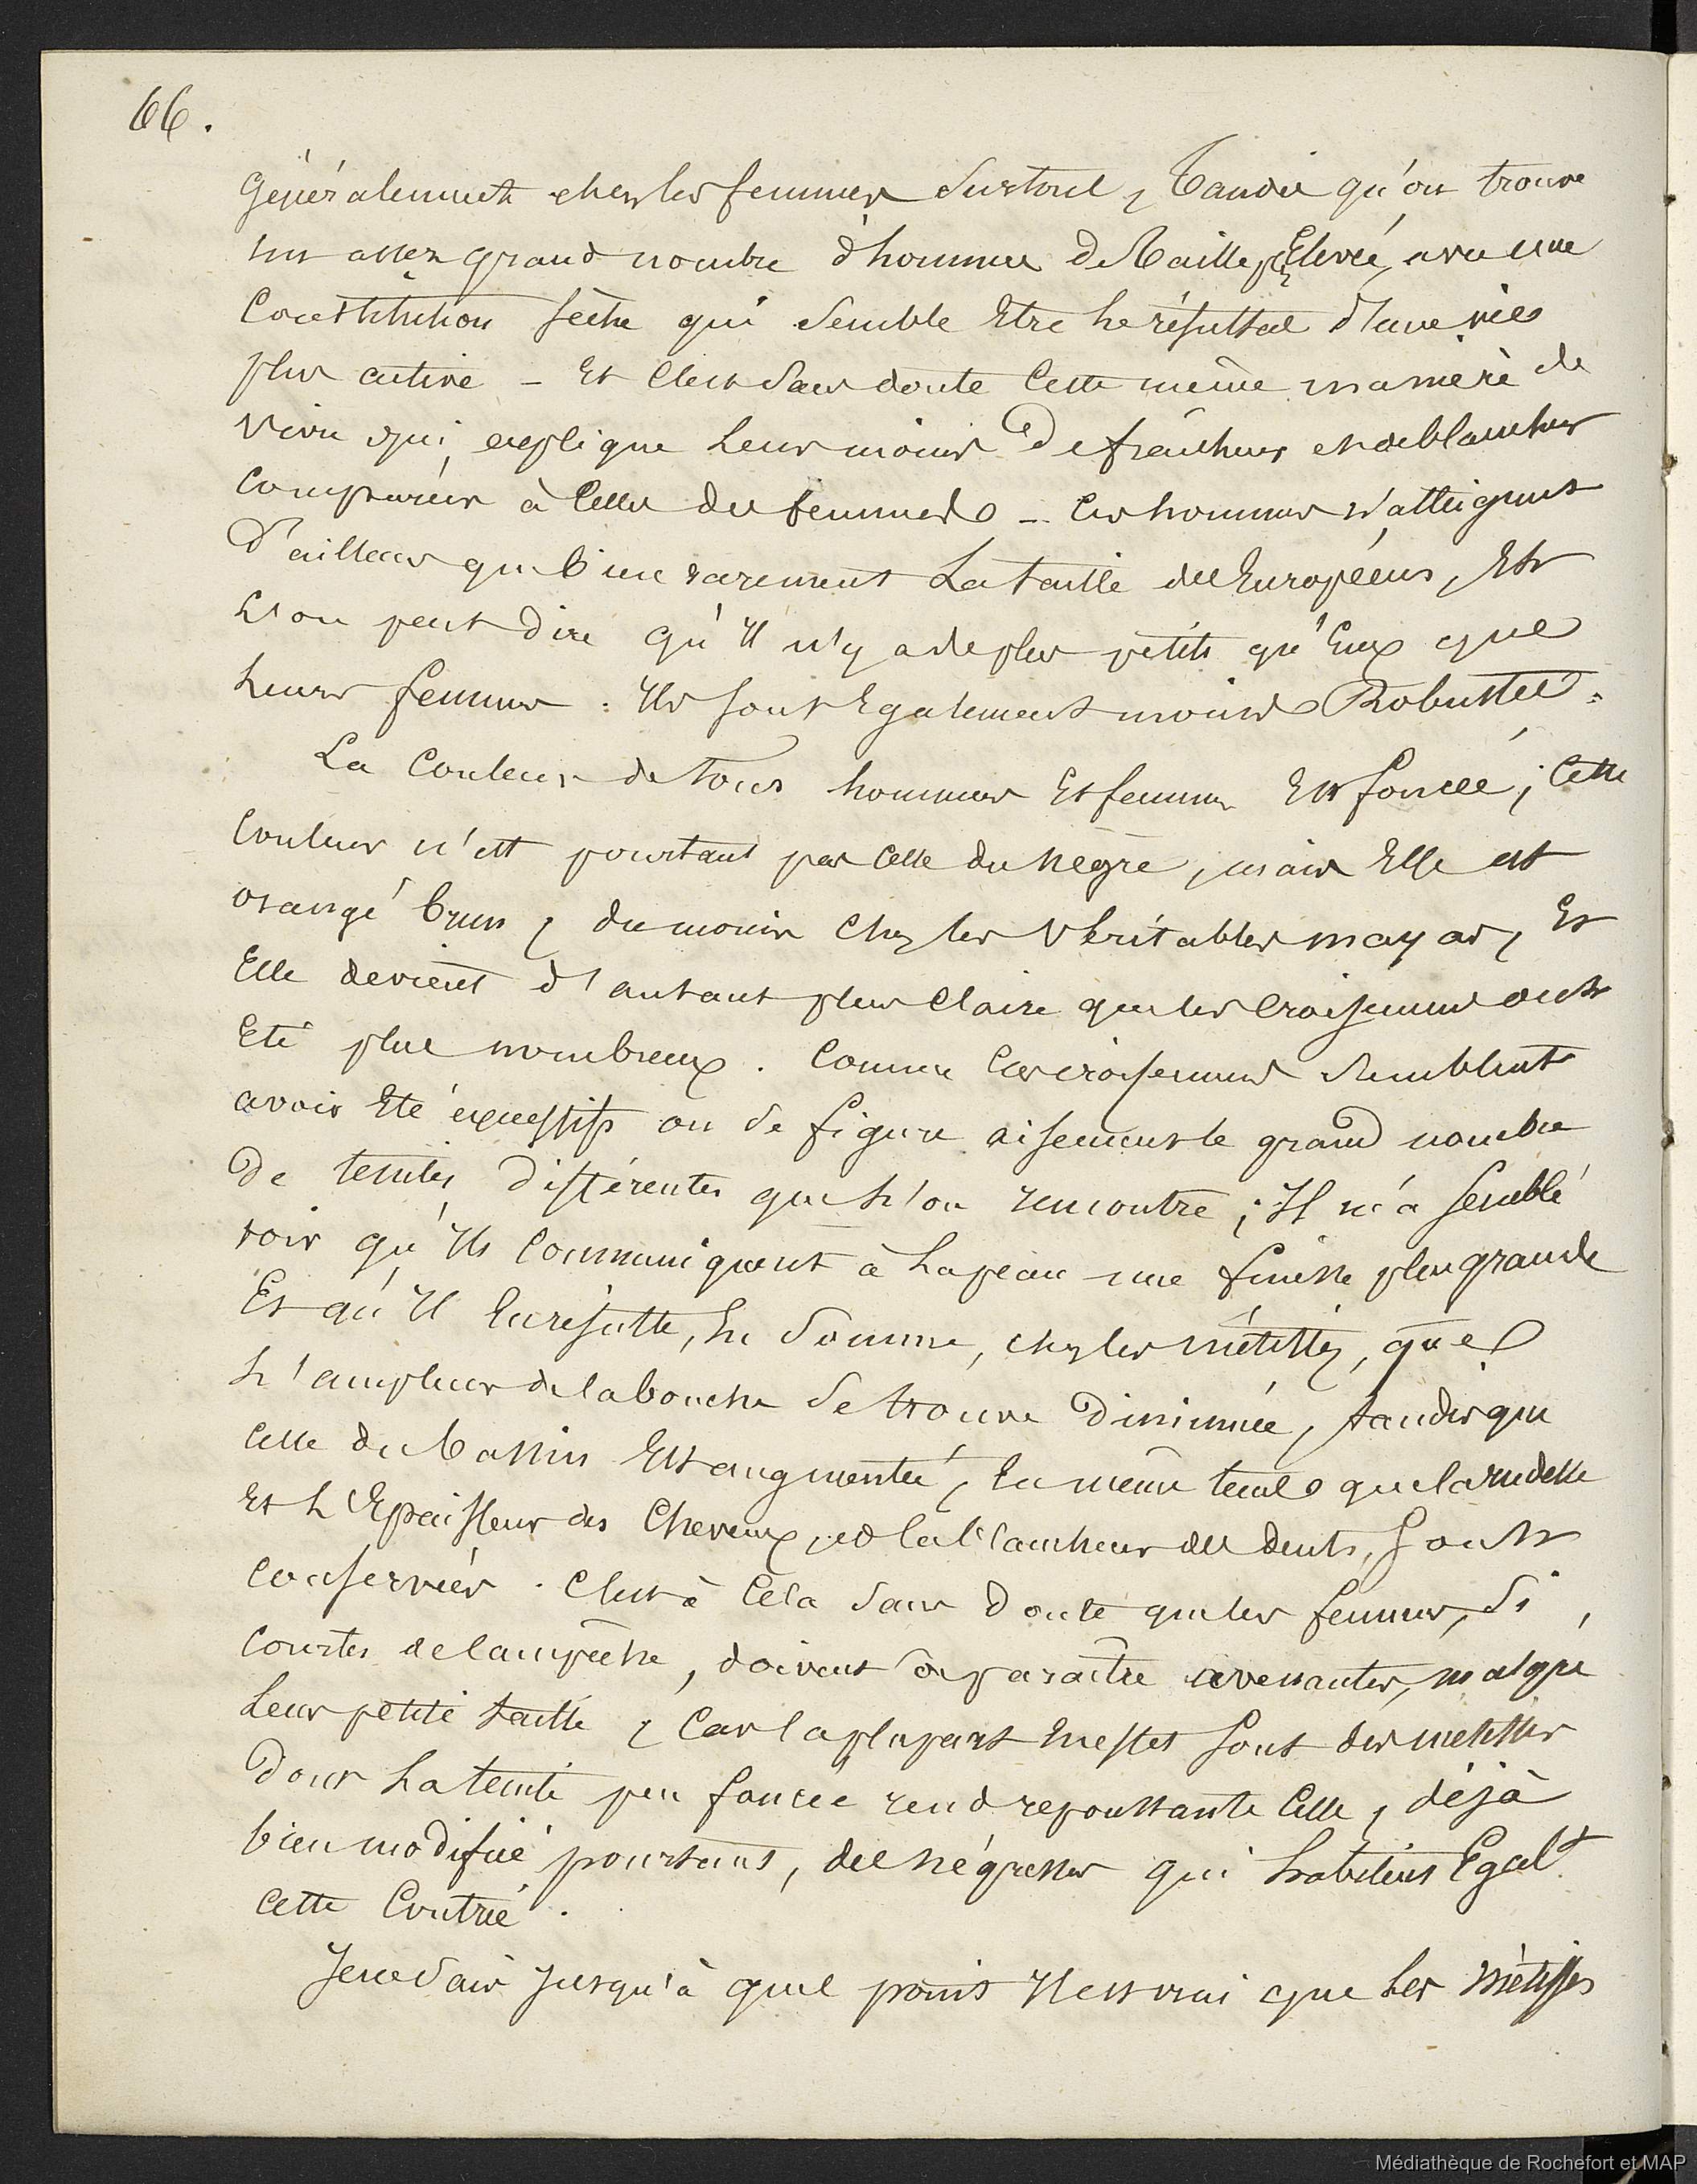 66.
Généralement chez les femmes surtout, Tandis qu'on trouve
un assez grand nombre d'hommes de Taille Elevée, avec une
Constitution sèche qui semble Etre le résultat d'une vie
plus active - Et C'est sans doute Cette même manière de
vivre qui explique leurs moins de fraîcheur et de blancheur
comparées à Celles des femmes - Ces hommes n'atteignent
d'ailleurs que bien rarement La taille des Européens, Et
L'on peut dire qu'Il n'y a de plus petits qu'Eux que
leurs femmes. Ils sont Egalement moins Robustes.
La Couleur de Tous hommes Et femmes Est foncée ; Cette
Couleur n'est pourtant pas Celle du Nègre, mais Elle est
orangé brun, du moins Chez les Véritables mayas, Et
Elle devient d'autant plus Claire que les Croisemens ont
Eté plus nombreux. Comme Ces croisemens semblent
avoir Eté excessifs on se figure aisement le grand nombre
De teintes différentes que L'on rencontre ; Il m'a semblé
voir qu'Ils Communiquent à La peau une finesse plus grande
Et qu'Il En résulte, En somme, chez les métisses, que
L'ampleur de la bouche se trouve Diminuée, tandis que
Celle du bassin Est augmentée, En même tems que la rudesse
Et L'Epaisseur des Cheveux, et la blancheur des dents, sont
conservées. C'est à Cela sans doute que les femmes, si
Courtes de Campêche, doivent de paraître avenantes, malgré
Leur petite taille, Car la plupart d'elles sont des métisses
Dont La teinte peu foncée rend repoussante Celle, déjà
bien modifiée pourtant, des négresses qui habitent Egalt
cette Contrée.
Je ne sais jusqu'à quel point Il est vrai que Les Métisses
Médiathèque de Rochefort et MAP